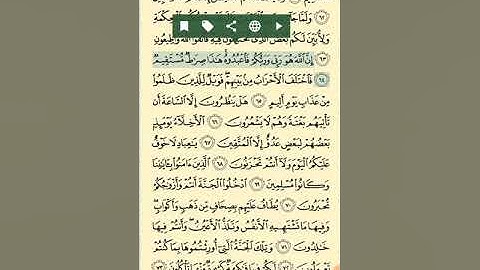 ٦٢ وَلَمَّا
وَلِأُبَيِّنَ لَكُم بَعْضَ ٱلَّذِى تَخْتَلِفُونَ فِيهِ فَٱتَّقُوا۟ ٱللَّهَ وَأَطِيعُونِ
٦٣ إِنَّ ٱللَّهَ هُوَ رَبِّى وَرَبُّكُمْ فَٱعْبُدُوهُ هَـٰذَا صِرَٰطٌ مُّسْتَقِيمٌ
٦٤ فَٱخْتَلَفَ ٱلْأَحْزَابُ مِنۢ بَيْنِهِمْ فَوَيْلٌ لِّلَّذِينَ ظَلَمُوا۟
مِنْ عَذَابِ يَوْمٍ أَلِيمٍ ٦٥ هَلْ يَنظُرُونَ إِلَّا ٱلسَّاعَةَ أَن
تَأْتِيَهُم بَغْتَةً وَهُمْ لَا يَشْعُرُونَ ٦٦ ٱلْأَخِلَّآءُ يَوْمَئِذٍۭ
بَعْضُهُمْ لِبَعْضٍ عَدُوٌّ إِلَّا ٱلْمُتَّقِينَ ٦٧ يَـٰعِبَادِ لَا خَوْفٌ
عَلَيْكُمُ ٱلْيَوْمَ وَلَآ أَنتُمْ تَحْزَنُونَ ٦٨ ٱلَّذِينَ ءَامَنُوا۟ بِـَٔايَـٰتِنَا
وَكَانُوا۟ مُسْلِمِينَ ٦٩ ٱدْخُلُوا۟ ٱلْجَنَّةَ أَنتُمْ وَأَزْوَٰجُكُمْ
تُحْبَرُونَ ٧٠ يُطَافُ عَلَيْهِم بِصِحَافٍ مِّن ذَهَبٍ وَأَكْوَابٍ
وَفِيهَا مَا تَشْتَهِيهِ ٱلْأَنفُسُ وَتَلَذُّ ٱلْأَعْيُنُ وَأَنتُمْ فِيهَا
خَـٰلِدُونَ ٧١ وَتِلْكَ ٱلْجَنَّةُ ٱلَّتِىٓ أُورِثْتُمُوهَا بِمَا كُنتُمْ
تَعْمَلُونَ ٧٢ لَكُمْ فِيهَا فَـٰكِهَةٌ كَثِيرَةٌ مِّنْهَا تَأْكُلُونَ ٧٣